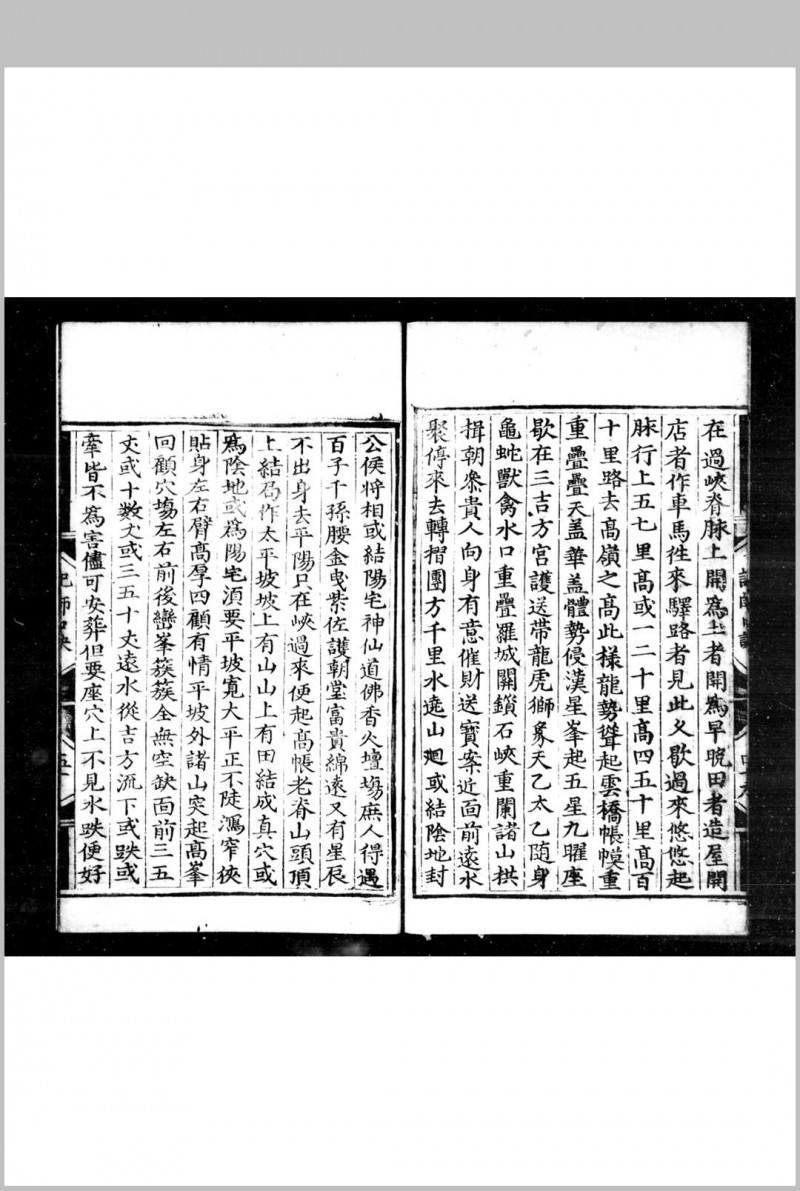 在過峽脊脉上開為土者開為旱晚田者造屋開
店者作車馬徃來驛路者見此义歇過來悠悠起
脉行上五七里髙或一二十里髙四五十里髙百
十里路去髙嶺之髙此様龍勢聳起雲橋帳幙重
重疊疊天盖華盖體勢侵漢星峯起五星九曜座
歇在三吉方宮護送帶龍虎獅象天乙太乙随身
龜蛇獸禽水口重疊羅城關鎖石峽重闌諸山拱
揖朝衆貴人向身有意催財送寳案近面前遠水
聚停來去轉摺團方千里水遶山廻或結陰地封
公侯將相或結陽宅神仙道佛香火壇塲庶人得遇
百子千孫腰金曵紫佐護朝堂富貴綿遠又有星辰
不出身去平陽只在峽過來便起髙帳老脊山頭頂
上結局作太平坡坡上有山山上有田結成真穴或
為陰地或為陽宅湏要平坡寬大平正不陡瀉窄狹
貼身左右臂髙厚四顧有情平坡外諸山突起髙峯
回顧穴塲左右前後巒峯簇簇全無空缺面前三五
丈或十數丈或三五十丈遠水從吉方流下或跌或
牽皆不為害儘可安葬但要座穴上不見水跌便好